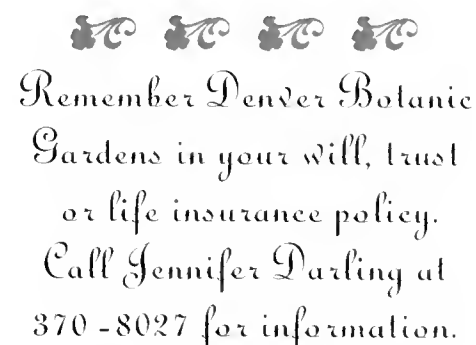 Remember Denver Botanic
Gardens in your will, trust
or life insurance policy.
Call Jennifer Darling at
370-8027 for information.